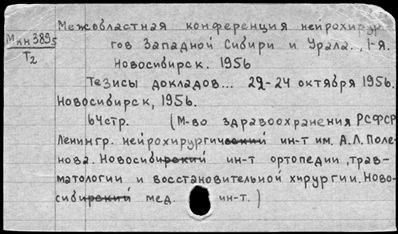 Межобластная конференция нейрохирур
Мкн 3895
гов Западной Сибири и Урала., 1-я.
Т2
Новосибирск. 1956
Тезисы докладов... 22-24 октября 1956.
Новосибирск, 1956.
64стр. (М-во здравоохранения РСФСР
Ленингр. нейрохирургический ин-т им. А.Л.Поле-
нова. Новосибирский ин-т ортопедии, трав-
матологии и восстановительной хирургии. Ново-
сибирский мед. ин-т.)